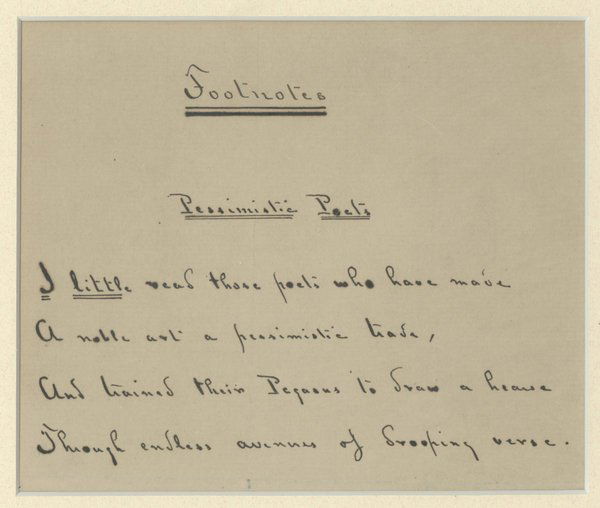 Footnotes
Pessimistic Poets
I little read those poets who have made
A noble art a pessimistic trade,
And trained their Pegasus to draw a hearse
Through endless avenues of drooping verse.